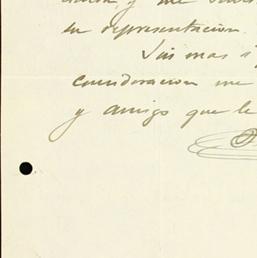 y me
su representacion.
Sin mas
consideracion me
y amigo que le